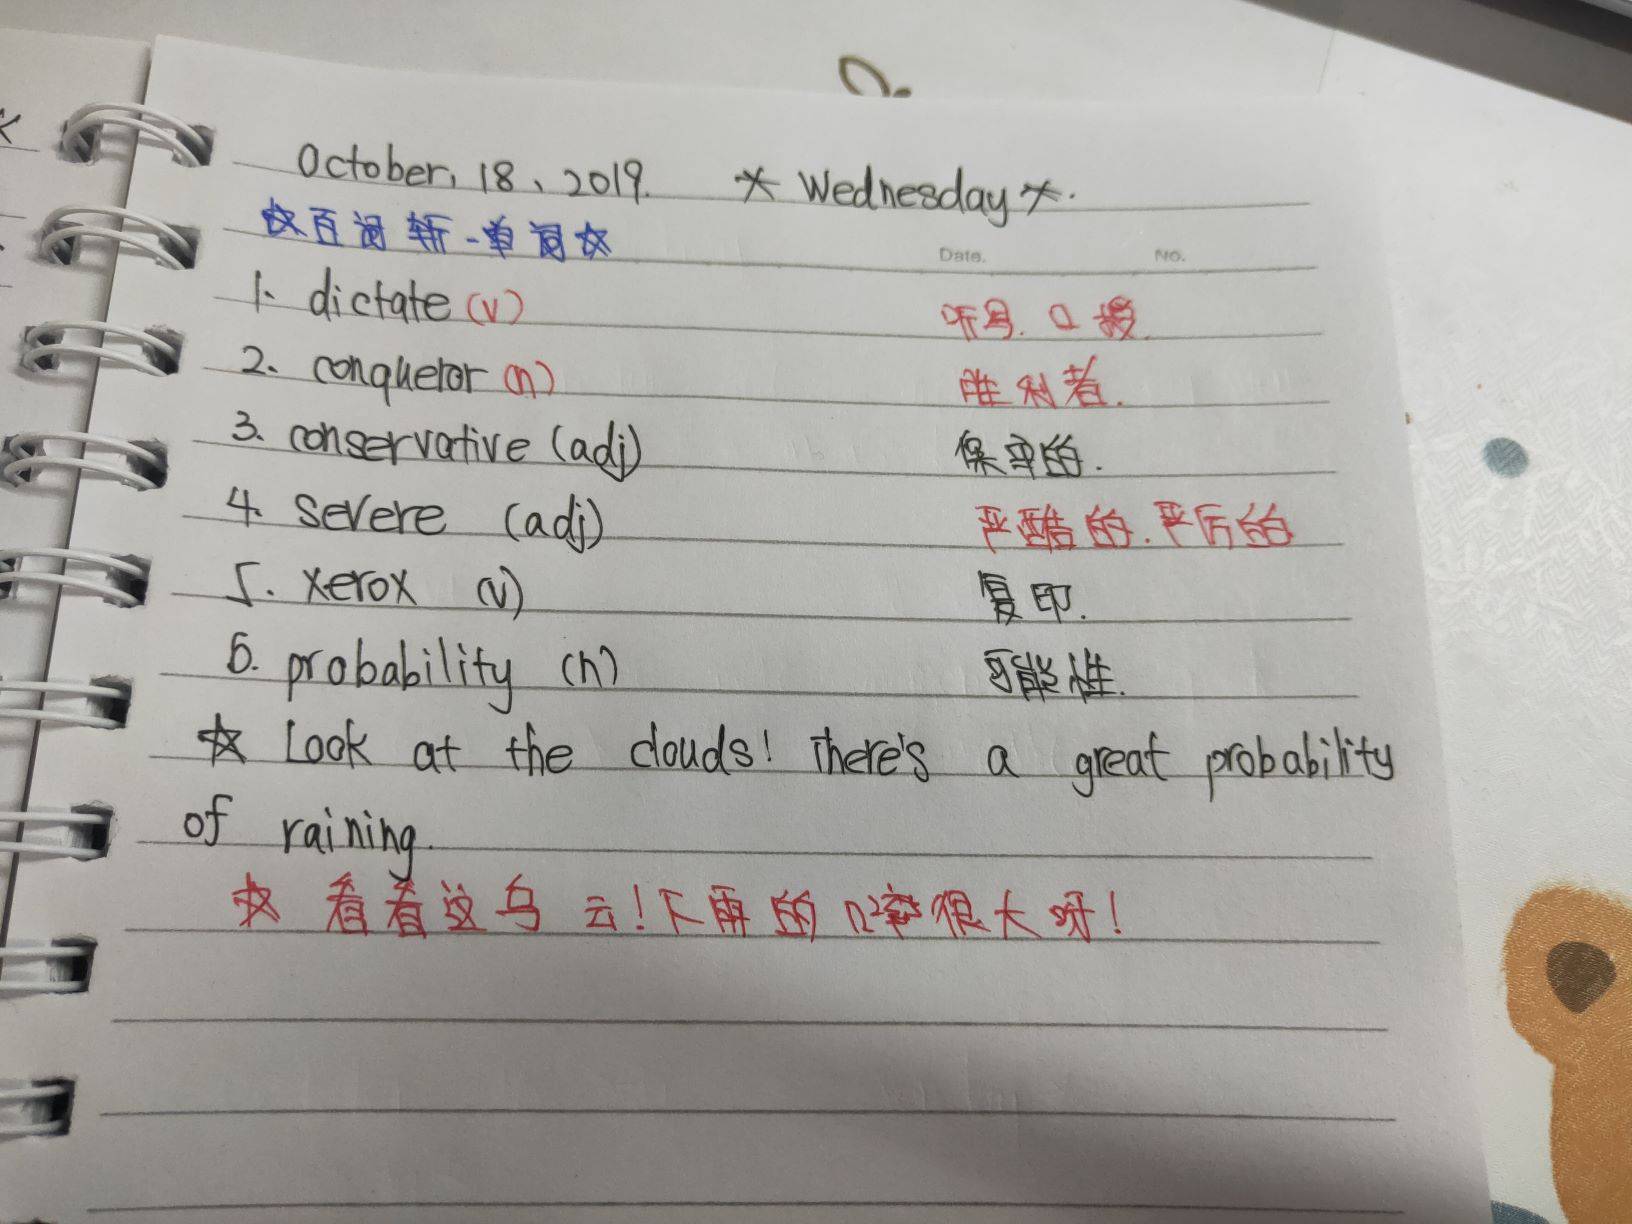 October, 18、2019. ☆ Wednesday ☆.
☆百词斩-单词☆
Date. No.
1. dictate (v) 听写. 口授.
2. conqueror (n) 胜利者.
3. conservative (adj) 保守的.
4. severe (adj) 严酷的. 严厉的
5. xerox (v) 复印.
6. probability (n) 可能性.
☆ Look at the clouds! There's a great probability
of raining.
☆ 看看这乌云!下雨的几率很大呀!